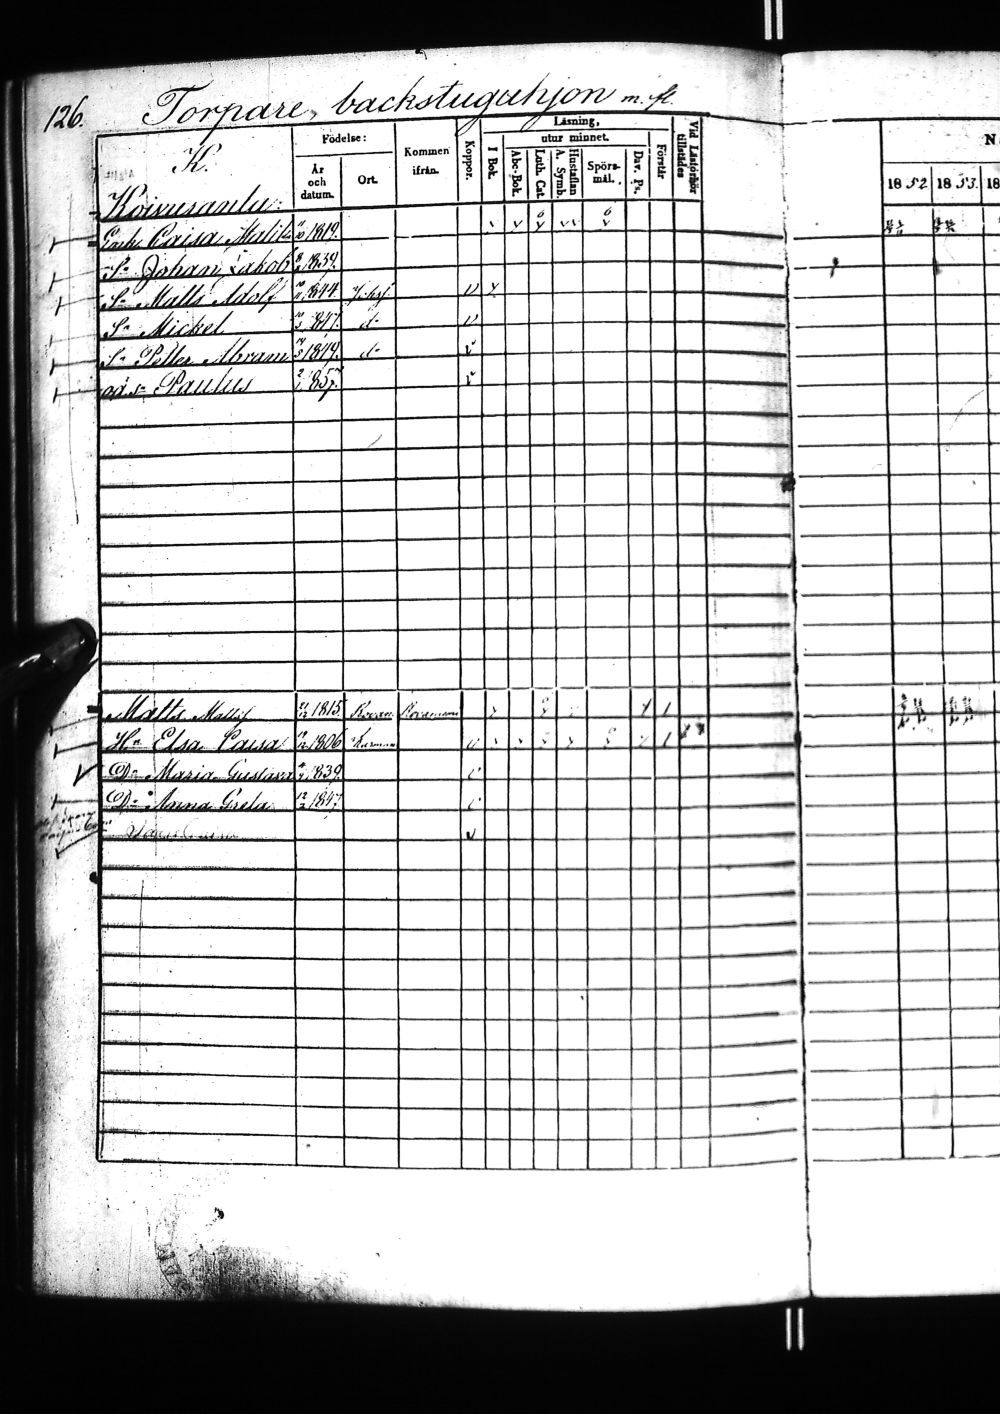 126.
Torpare, backstuguhjon m. fl.
K.
Födelse:
År och datum.
Ort.
Kommen ifrån.
Koppor.
Läsning,
I Bok.
utur minnet.
Abc-Bok.
Luth. Cat.
A. Symb.
Hustaflan
Spörs-mål.
Dav. Ps.
Förstår
Vid Läsförhör tillstädes
N
1852 1853. 18
Koivusantu:
Enk. Caisa 1819.
Sn Johan Jakob 1839.
Sn Matts Adolf 1844
Sn Mickel 1847. do
Sn Petter Abram 1849. do
Paulus 1857.
Matts Mattsf 21/12 1815
Hu Elsa Caisa 1806
Dr Maria Gustava 1839
Dr Anna Greta 12/2 1847.